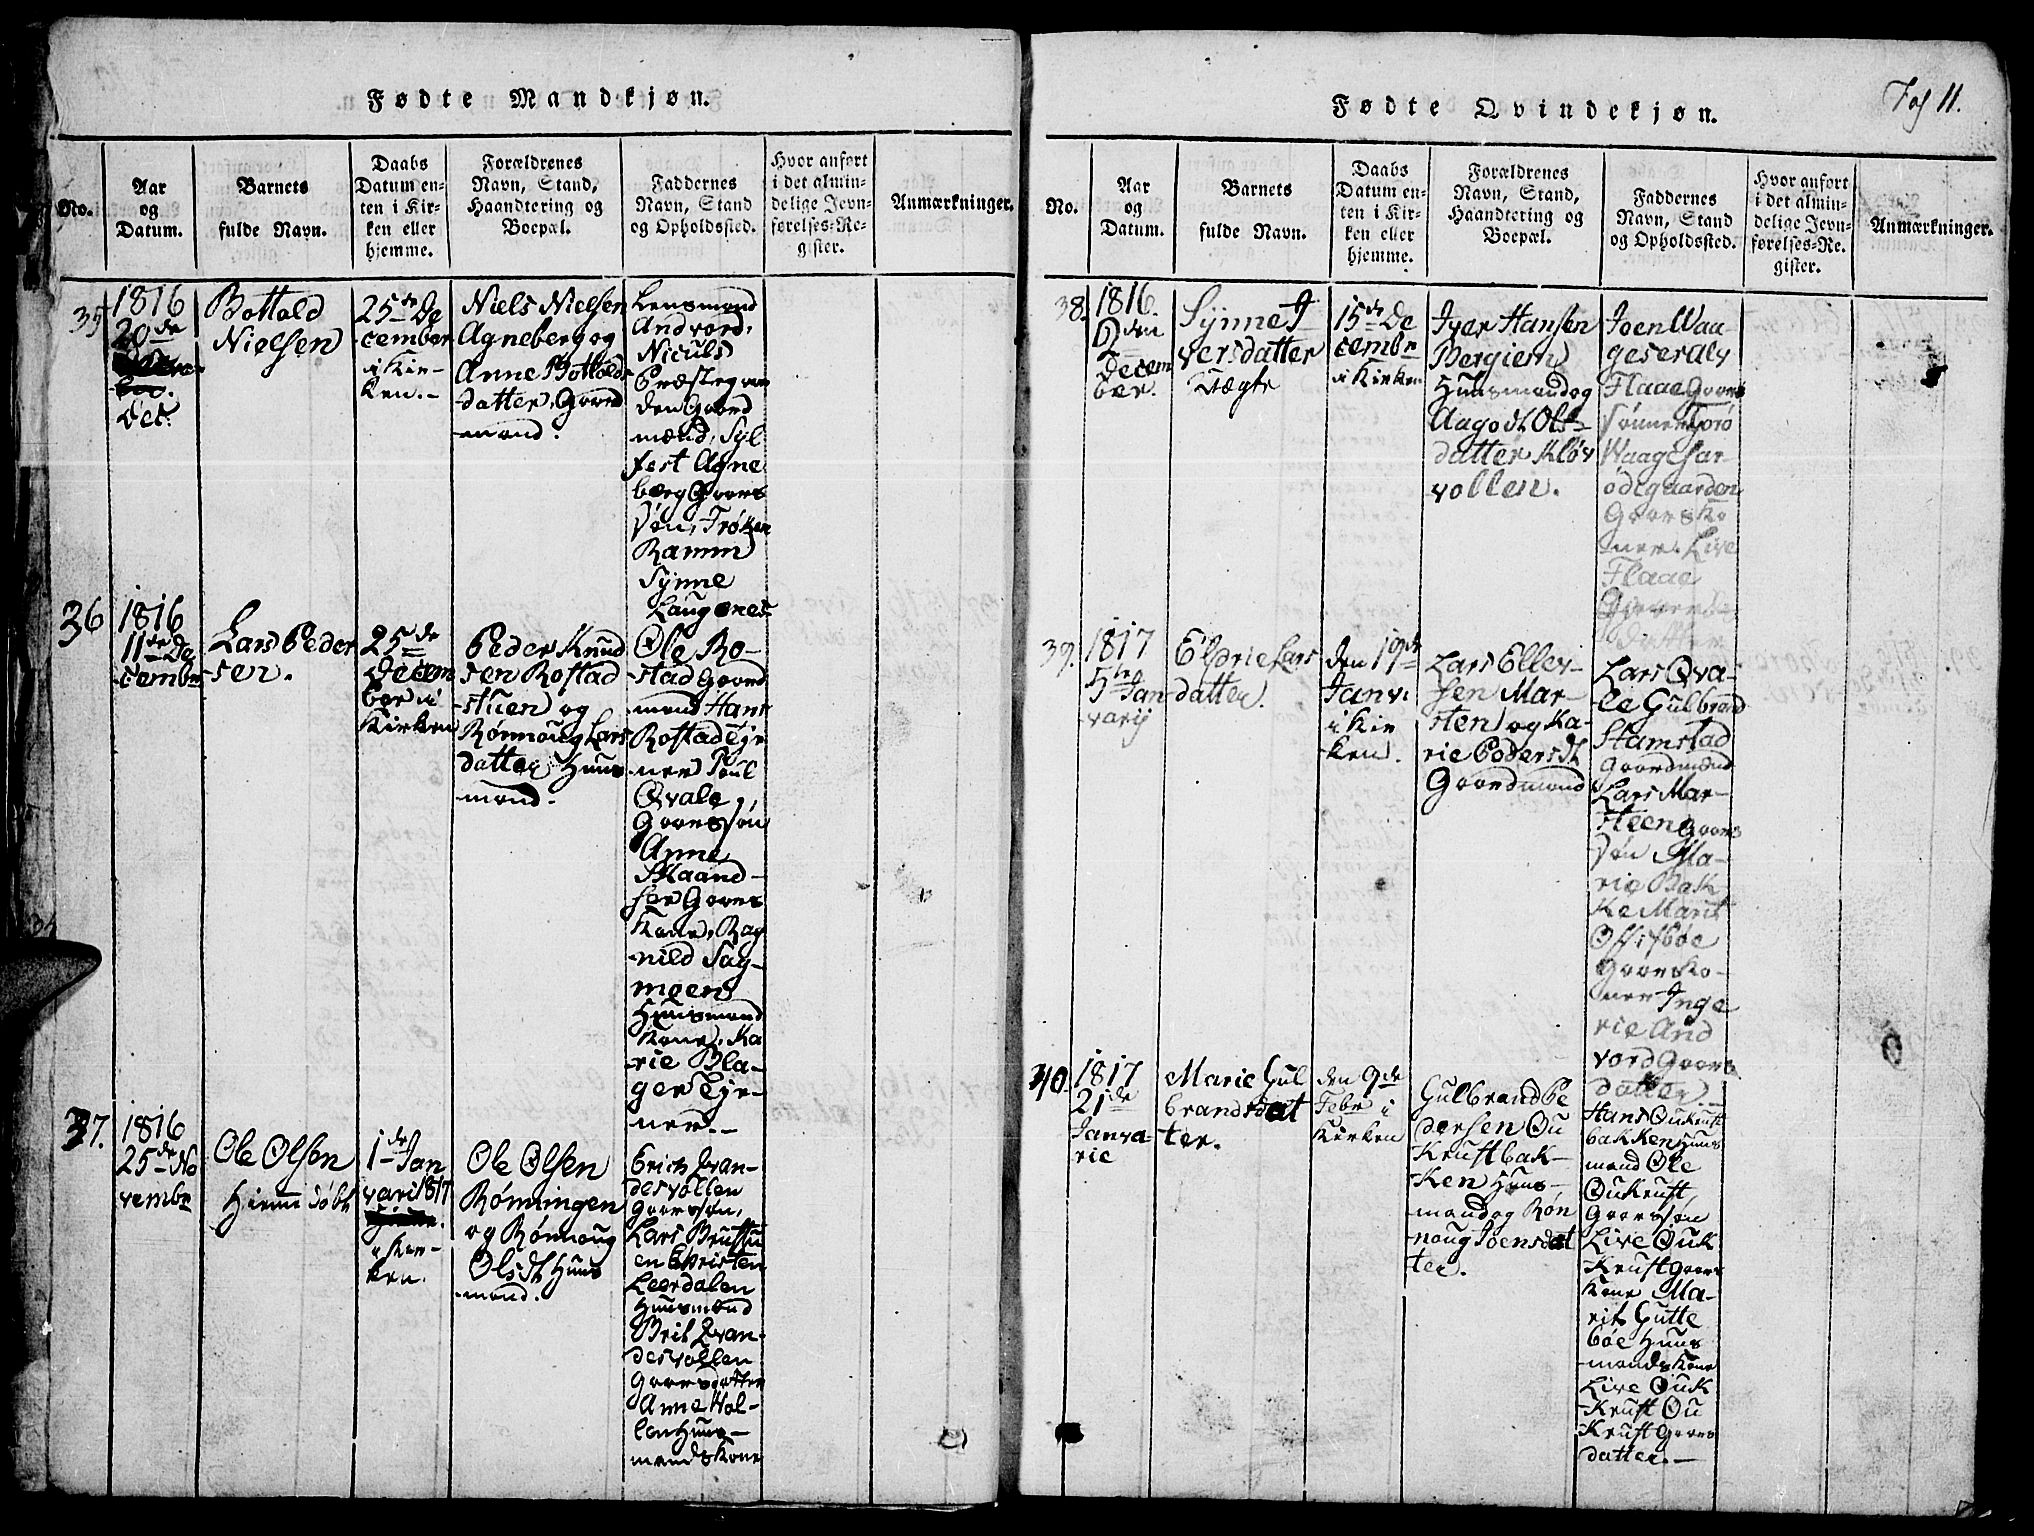 Fødte Mandkjøn.
No.
Aar
og
Datum.
Barnets
fulde Navn.
Daabs
Datum en-
ten i Kir-
ken eller
hjemme.
Forældrenes
Navn, Stand,
Haandtering og
Boepæl.
Faddernes
Navn, Stand
og Opholdssted.
Hvor anført
i det almin-
delige Jevn-
førelses-Re-
gister.
Anmærkninger.
35
1816
20de
Dec.
Bottold
Nielsen
25de De
cember
i Kir-
ken.-
Niels Nielsen
Agneberg og
Anne Bottolds
datter, Gaard
mand.
Lensmand
Andvord,
Niculs
Præstegaar
den Gaard
mænd, Syl
fest Agne
berg Gaars
søn, Frøken
Ramm
Synne
Laugenes
36
1816
11te De
cembr
Lars Peder
sen.
25de
Decem
ber i
Kirken
Peder Knud
sen Rostad
stuen og
Rønnoug Lars
datter Huus
mand.
Ole Ro-
stad Gaard
mand Hans
Rostad Tje
ner Poul
Qvale,
Gaarssøn
Anne
Skaand-
ser Gaars
Kone, Rag
nild Sag-
moen
Huusmand
Kone, Ka
rie Bla-
ger Tje-
ner.-
37.
1816
25de No
vembr
Ole Olsen
Hiemme døbt
1de Jan
vari 1817
i Kir-
ken.
Ole Olsen
Rønningen
og Rønnoug
Olsdt Huus
mand.
Erich Qvan-
desvollen
Gaarssøn,
Lars Brustu
en Christen
Leerdalen
Huusmænd
Brit Qvan-
desvollen
Gaarsdatter
Anne Vol-
len Huus-
mandskone
Fødte Qvindekjøn.
Fol 11.
No.
Aar
og
Datum.
Barnets
fulde Navn.
Daabs
Datum en-
ten i Kir-
ken eller
hjemme.
Forældrenes
Navn, Stand,
Haandtering og
Boepæl.
Faddernes
Navn, Stand
og Opholdssted.
Hvor anført
i det almin-
delige Jevn-
førelses-Re-
gister.
Anmærkninger.
38.
1816.
2den
Decem
ber.
Synne I
versdatter
Uægte
15de De
cembr
i Kirken
Iver Hansen
Bergiem
Huusmand og
Aagodt Ols-
datter Kløv
vollen.
Joen Waa
geser
Flaae Gaars
sønner Toro
Waagesar
ødegaarden
Gaarsko
ner. Live
Flaae
Gaars
datter
39.
1817
5te Jan
varij
Eldrie Lars
datter.
den 19de
Janv.
i Kir
ken.
Lars Ellev-
sen Mar-
sten og Ka-
rie Pedersdt
Gaardmand
Lars Qva-
le Gulbrand
Stamstad
Gaardmænd
Lars Mar-
steen Gaars
søn Ma-
rie Bak
ke Marit
Offigsbøe
Gaarsko-
ner Inge
rie And
vord Gaars
datter.
40.
1817
21de
Janva-
rie
Marie Gul
brandsdat
ter.
den 9de
Febr i
Kirken
Gulbrand Pe
dersen Ou
Krustbak-
ken Huus-
mand og Røn
noug Joensdat
ter.
Hans Oukrust
bakken Huus
mand Ole
Oukrust,
Gaarssøn
Live Ouk
Krust Gaars
Kone Ma-
rit Gutte
bøe Huus
mandskone
Live Ouk
Krust Ou
Krust Gaars
datter.-